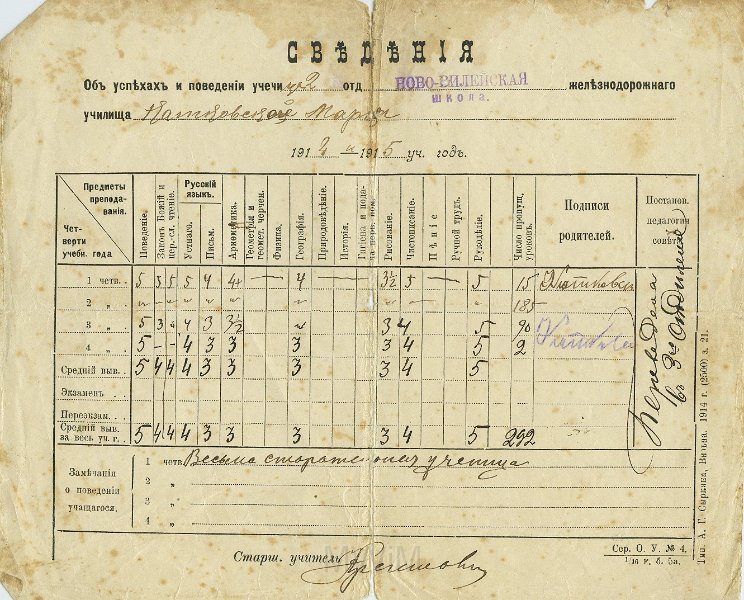 СВѢДѢНІЯ
Объ успѣхахъ и поведеніи учениц 2 отд НОВО-ВИЛЕНСКАЯ ШКОЛА. желѣзнодорожнаго
училища Марія
1914 и 1915 уч. годъ.
Предметы преподаванія. Четверти учебн. года
Поведеніе.
Законъ Божій и
Русскій языкъ.
Устнаго.
Письм.
Ариѳметика.
Геометрія и геомет. черчен.
Физика.
География.
Природовѣдѣніе.
Исторія.
Рисованіе.
Чистописаніе.
Пѣніе
Ручной трудъ.
Рукодѣліе.
Число пропущ. уроковъ.
Подписи родителей.
Постанов. педагогич совѣта.
1 четв. 5 3 5 5 4 4 — — 4 — — — 3½ 5 — — 5 15
2 „ „ „ „ „ „ 185
3 „ 5 3 „ 4 3 3½ „ 3 4 5 90
4 „ 5 — — 4 3 3 3 3 4 5 2
Средній выв. 5 4 4 4 3 3 3 3 4 5
Экзаменъ . .
Переэкзам. . .
Средній выв. за весь уч. г. 5 4 4 4 3 3 3 3 4 5 292
Переведена въ 3е Отдѣленіе
Замѣчанія о поведеніи учащагося.
1 четв Весьма ученица
2 „
3 „
4 „
Старш. учитель
Сер. О. У. № 4.
Тип. А. Г. Сыркина, Вильна. 1914 г. (2500) з. 21.